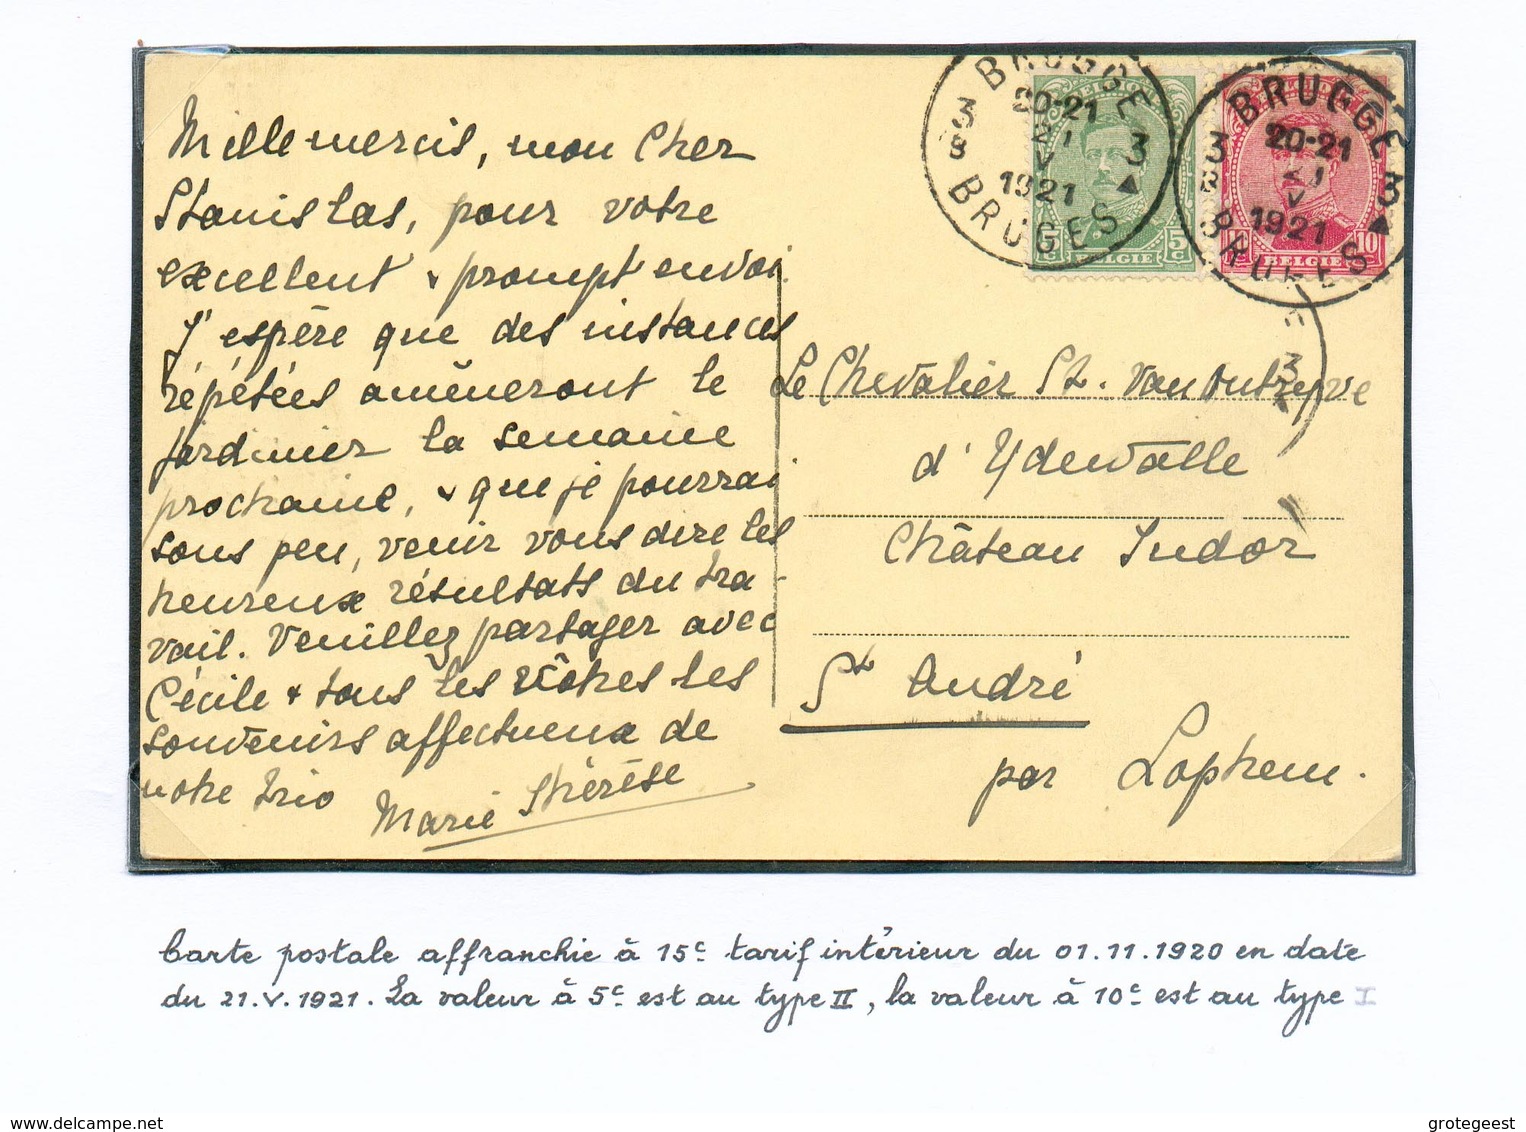 Mille mercis, mon Cher
Stanislas, pour votre
excellent & prompt envoi.
J'espère que des instances
répétées amèneront le
jardinier la semaine
prochaine, & que je pourrai
sous peu, venir vous dire les
heureux résultats du tra-
vail. Veuillez partager avec
Cécile & tous les vôtres les
souvenirs affectueux de
notre trio
Marie Thérèse
BRUGGE
3
20-21
21
V
1921
3
B
BRUGES
5c
BELGIE
BRUGGE
3
20-21
21
V
1921
3
BRUGES
10
BELGIE
3
Le Chevalier St. van Outryve
d'Ydewalle
Château Tudor
St André
par Lophem.
Carte postale affranchie à 15c tarif intérieur du 01.11.1920 en date
du 21.V.1921. La valeur à 5c est au type II, la valeur à 10c est au type I
www.delcampe.net
grotegeest